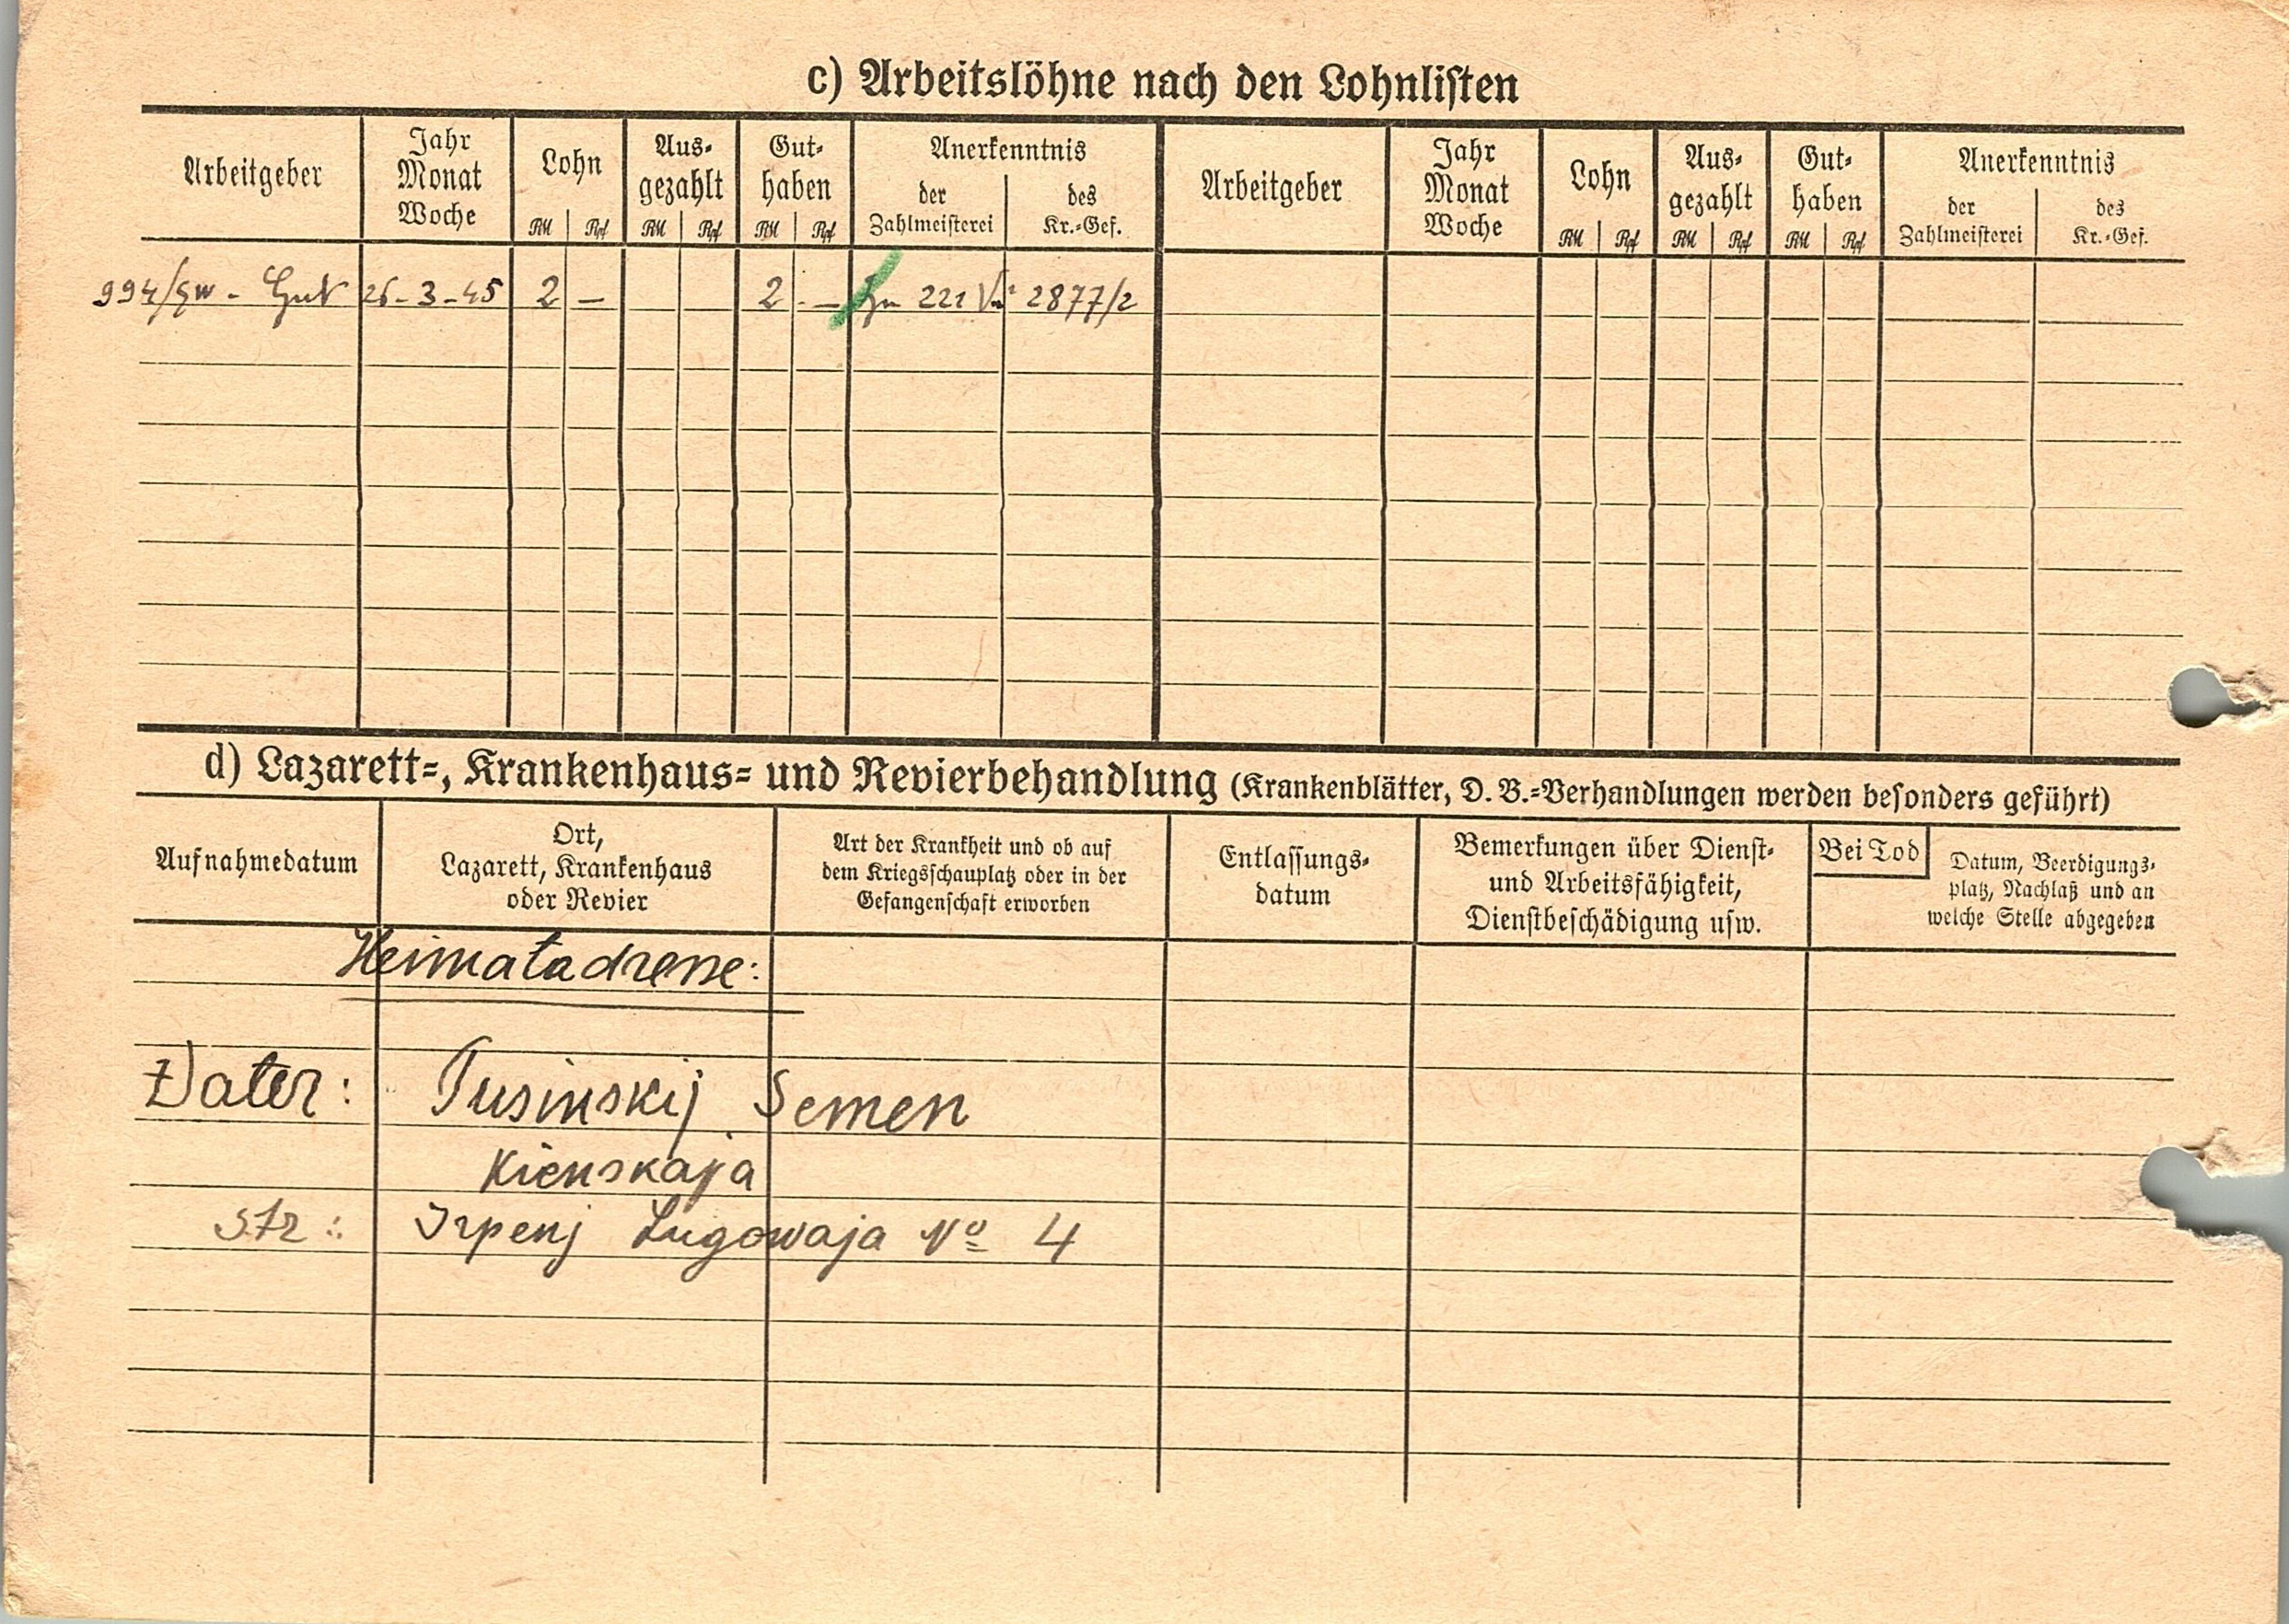 c) Arbeitslöhne nach den Lohnlisten
Arbeitgeber
Jahr
Monat
Woche
Lohn
RM Rpf
Aus-
gezahlt
RM Rpf
Gut-
haben
RM Rpf
Anerkenntnis
der
Zahlmeisterei
des
Kr.-Gef.
Arbeitgeber
Jahr
Monat
Woche
Lohn
RM Rpf
Aus-
gezahlt
RM Rpf
Gut-
haben
RM Rpf
Anerkenntnis
der
Zahlmeisterei
des
Kr.-Gef.
26-3-45 2 – 2 - – 221 2877/2
d) Lazarett-, Krankenhaus- und Revierbehandlung (Krankenblätter, D. B.-Verhandlungen werden besonders geführt)
Aufnahmedatum
Ort,
Lazarett, Krankenhaus
oder Revier
Art der Krankheit und ob auf
dem Kriegsschauplatz oder in der
Gefangenschaft erworben
Entlassungs-
datum
Bemerkungen über Dienst-
und Arbeitsfähigkeit,
Dienstbeschädigung usw.
Bei Tod
Datum, Beerdigungs-
platz, Nachlaß und an
welche Stelle abgegeben
Heimatadresse:
Vater: Pusinskij Semen
Kienskaja
Str: Irpenj Lugowaja No 4